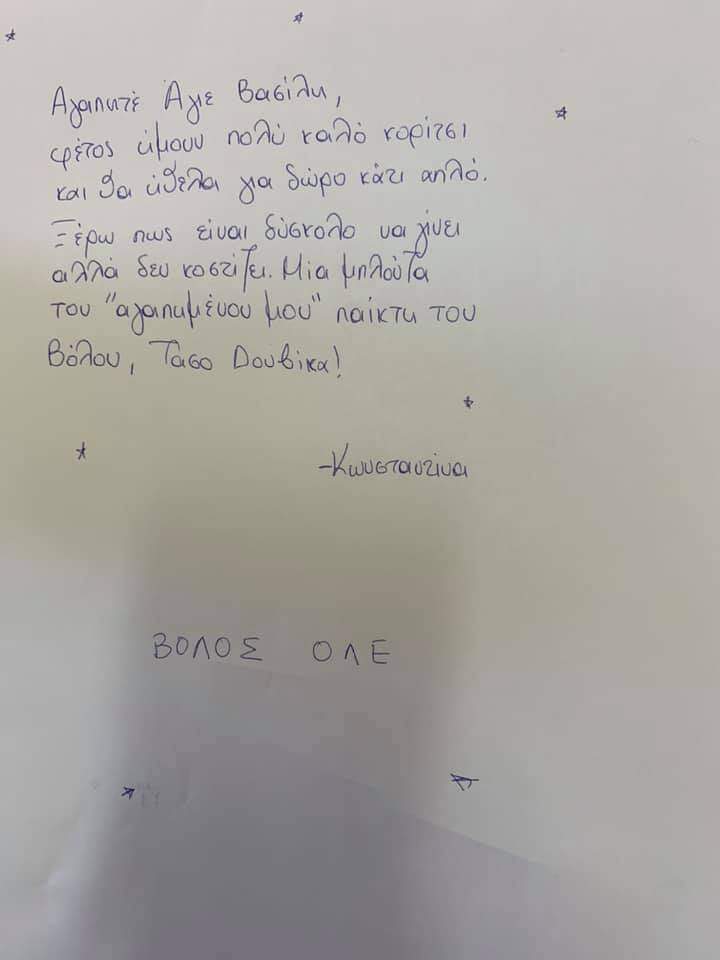 Αγαπητέ Άγιε Βασίλη,
φέτος ήμουν πολύ καλό κορίτσι
και θα ήθελα για δώρο κάτι απλό.
Ξέρω πως είναι δύσκολο να γίνει
αλλά δεν κοστίζει. Μία μπλούζα
του "αγαπημένου μου" παίκτη του
Βόλου, Τάσο Δουβίκα!
-Κωνσταντίνα
ΒΟΛΟΣ ΟΛΕ